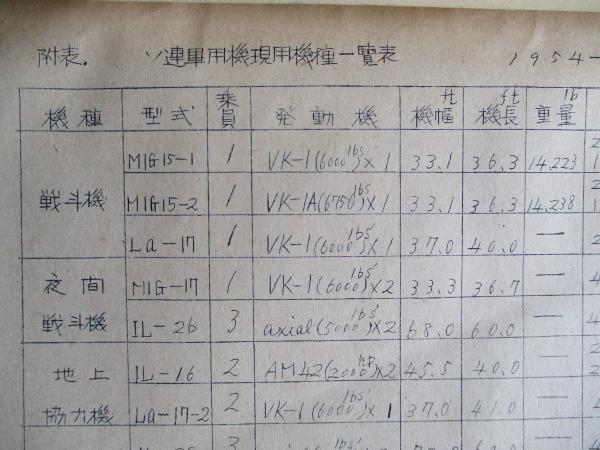 附表. ソ連軍用機現用機種一覧表 1954-
機種 型式 乗員 発動機 機幅 ft 機長 ft 重量 lb
MIG15-1 1 VK-1(6000lbs)×1 33.1 36.3 14,223
戦斗機 MIG15-2 1 VK-1A(6750lbs)×1 33.1 36.3 14,238
La-17 1 VK-1(6000lbs)×1 37.0 40.0 —
夜間 MIG-17 1 VK-1(6000lbs)×2 33.3 36.7 —
戦斗機 IL-26 3 axial(5000lbs)×2 68.0 60.0 —
地上 IL-16 2 AM42(2000hp)×2 45.5 40.0 —
協力機 La-17-2 2 VK-1(6000lbs)×1 37.0 41.0 —